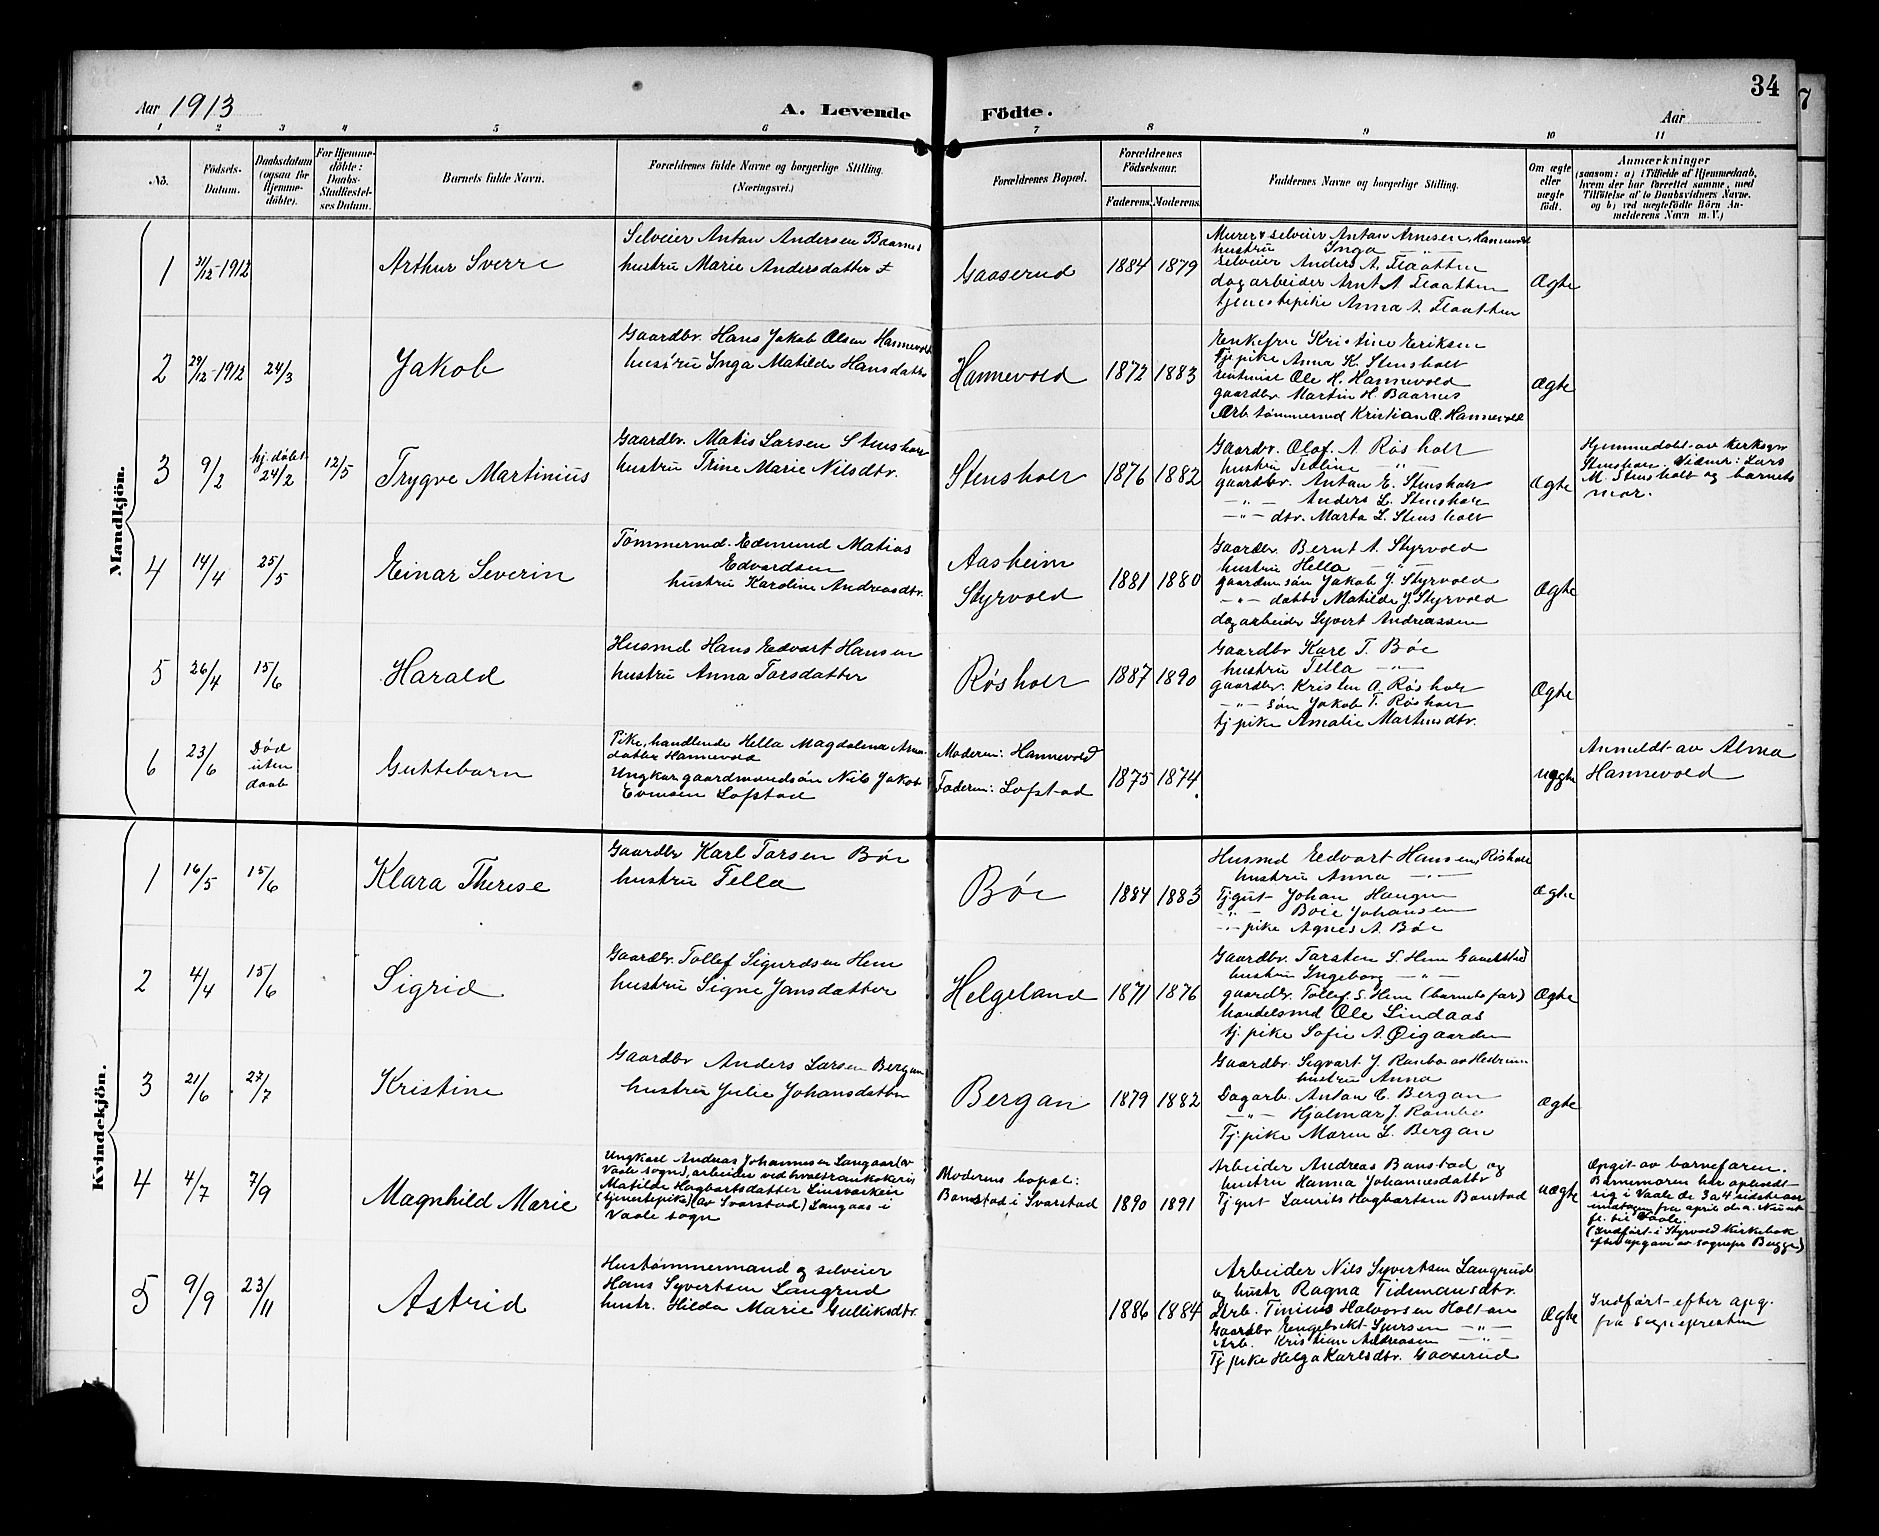 34
Aar 1913
A. Levende Födte.
Aar
1 2 3 4 5 6 7 8 9 10 11
No.
Födsels-
Datum.
Daabsdatum
(ogsaa for
Hjemme-
döbte).
For Hjemme-
döbte:
Daabs-
Stadfæstel-
ses Datum.
Barnets fulde Navn.
Forældrenes fulde Navne og borgerlige Stilling.
(Næringsvei.)
Forældrenes Bopæl.
Forældrenes
Födselsaar.
Faderens. Moderens.
Faddernes Navne og borgerlige Stilling.
Om ægte
eller
uægte
födt.
Anmærkninger
(saasom: a) i Tilfælde af Hjemmedaab,
hvem der har forrettet samme, med
Tilföielse af to Daabsvidners Navne.
og b) ved uægtefödte Börn An-
melderens Navn m. V.)
Mandkjön.
1
31/12-1912
Arthur Sverre
Selveier Anton Andersen Baarnes
hustru Marie Andersdatter
Gaaserud
1884 1879
Murer & selveier Anton Arnesen, Hannevold
hustru Inga
selveier Anders A. Flaatten
dagarbeider Arnt A Flaatten
tjenestepike Anna A. Flaatten
Ægte
2
29/12-1912
24/3
Jakob
Gaardbr. Hans Jakob Olsen Hannevold
hustru Inga Matilde Hansdatter
Hannevold
1872 1883
Enkefru Kristine Eriksen
Tj.pike Anna K. Stensholt
Ole H. Hannevold
gaardbr Martin H. Baarnes
Arb. tømmermd Kristian O. Hannevold
Ægte
3
9/2
hj. døbt
24/2
12/5
Trygve Martinius
Gaardbr. Matis Larsen Stensholt
hustru Trine Marie Nilsdtr.
Stensholt
1876 1882
Gaardbr. Olaf. A. Røsholt
hustru Tedline -"-
gaardbr. Anton E. Stensholt
-"- Anders L. Stensholt
-"- dtr. Marta L. Stensholt
Ægte
Hjemmedøbt av kirkesgr
Stensholt. Vidner: Lars
M. Stensholt og barnets
mor.
4
14/4
25/5
Einar Severin
Tømmermd. Edmund Matias
Edvardsen
hustru Karoline Andreasdtr.
Aasheim
Styrvold
1881 1880
Gaardbr. Bernt A. Styrvold
hustru Hella -"-
gaardm. søn Jakob J. Styrvold
-"- datter Matilde J. Styrvold
dagarbeider Syvert Andreassen
Ægte
5
26/4
15/6
Harald
Husmd Hans Edvart Hansen
hustru Anna Torsdatter
Røsholt
1887 1890
Gaardbr Karl T. Bøe
hustru Tella -"-
gaardbr. Kristen A. Røsholt
-"- søn Jakob T. Røsholt
tj.pike Amalie Martinsdtr.
Ægte
6
23/6
Død
uten
daab
Guttebarn
Pike, handlende Hella Magdalena Arne-
datter Hannevold
Ungkar gaardmandsøn Nils Jakob
Evensen Lofstad
Moderen: Hannevold
Faderen: Lofstad
1875 1874
uægte
Anmeldt av Alma
Hannevold
Kvindekjön.
1
16/5
15/6
Klara Therese
Gaardbr Karl Torsen Bøe
hustru Tella
Bøe
1884 1883
Husmd Edvart Hansen, Røsholt
hustru Anna -"-
Tj.gut Johan Haugen
-"- Boie Johansen
-"- pike Agnes A. Bøe
Ægte
2
4/4
15/6
Sigrid
Gaardbr. Tollef Sigurdsen Hem
hustru Signe Jansdatter
Helgeland
1871 1876
Gaardbr. Torsten S. Hem
hustru Ingeborg -"-
gaardbr. Tollef S. Hem (barnets far)
handelsmd Ole Lindaas
tj. pike Sofie A. Øigaarden
Ægte
3
21/6
27/7
Kristine
Gaardbr Anders Larsen Bergan
hustru Julie Johansdatter
Bergan
1879 1882
Gaardbr. Sigvart J. Rambo av Hedrum
hustru Anna
Dagarb. Anton C. Bergan
-"- Hjalmar J. Rambo
Tj.pike Maren L. Bergan
Ægte
4
4/7
7/9
Magnhild Marie
Ungkarl Andreas Johannesen Langaas (av
Vaale sogn), arbeider ved hvaltrankokeri
Matilde Hagbartsdatter
(tjenestepike) (av Svarstad) Langaas i
Vaale sogn
Moderens bopæl:
Banstad i Svarstad
1890 1891
Arbeider Andreas Banstad og
hustru Hanna Johannesdatter
Tj.gut Laurits Hagbartsen Banstad
uægte
Opgit av barnefaren.
Barnemoren har opholdt
sig i Vaale de 3 a 4 sidste aar
indtagen fra april d.a.
fl. til Vaale.
(Indført i Styrvold kirkebok
efter opgave av sognepr Bugge)
5
9/9
23/11
Astrid
Hustømmermand og selveier
Hans Syvertsen Langrud
hustr. Hilda Marie Gulliksdtr.
1886 1884
Arbeider Nils Syvertsen Langrud
og hustr Ragna Tidemansdtr.
Arb. Tinius Halvorsen Holtan
Gaardbr Engebrekt Syversen -"-
Arb. Kristian Andreasen -"-
Tj pike Helga Karlsdtr. Gaaserud
Ægte
Indført efter opg.
fra sognepresten